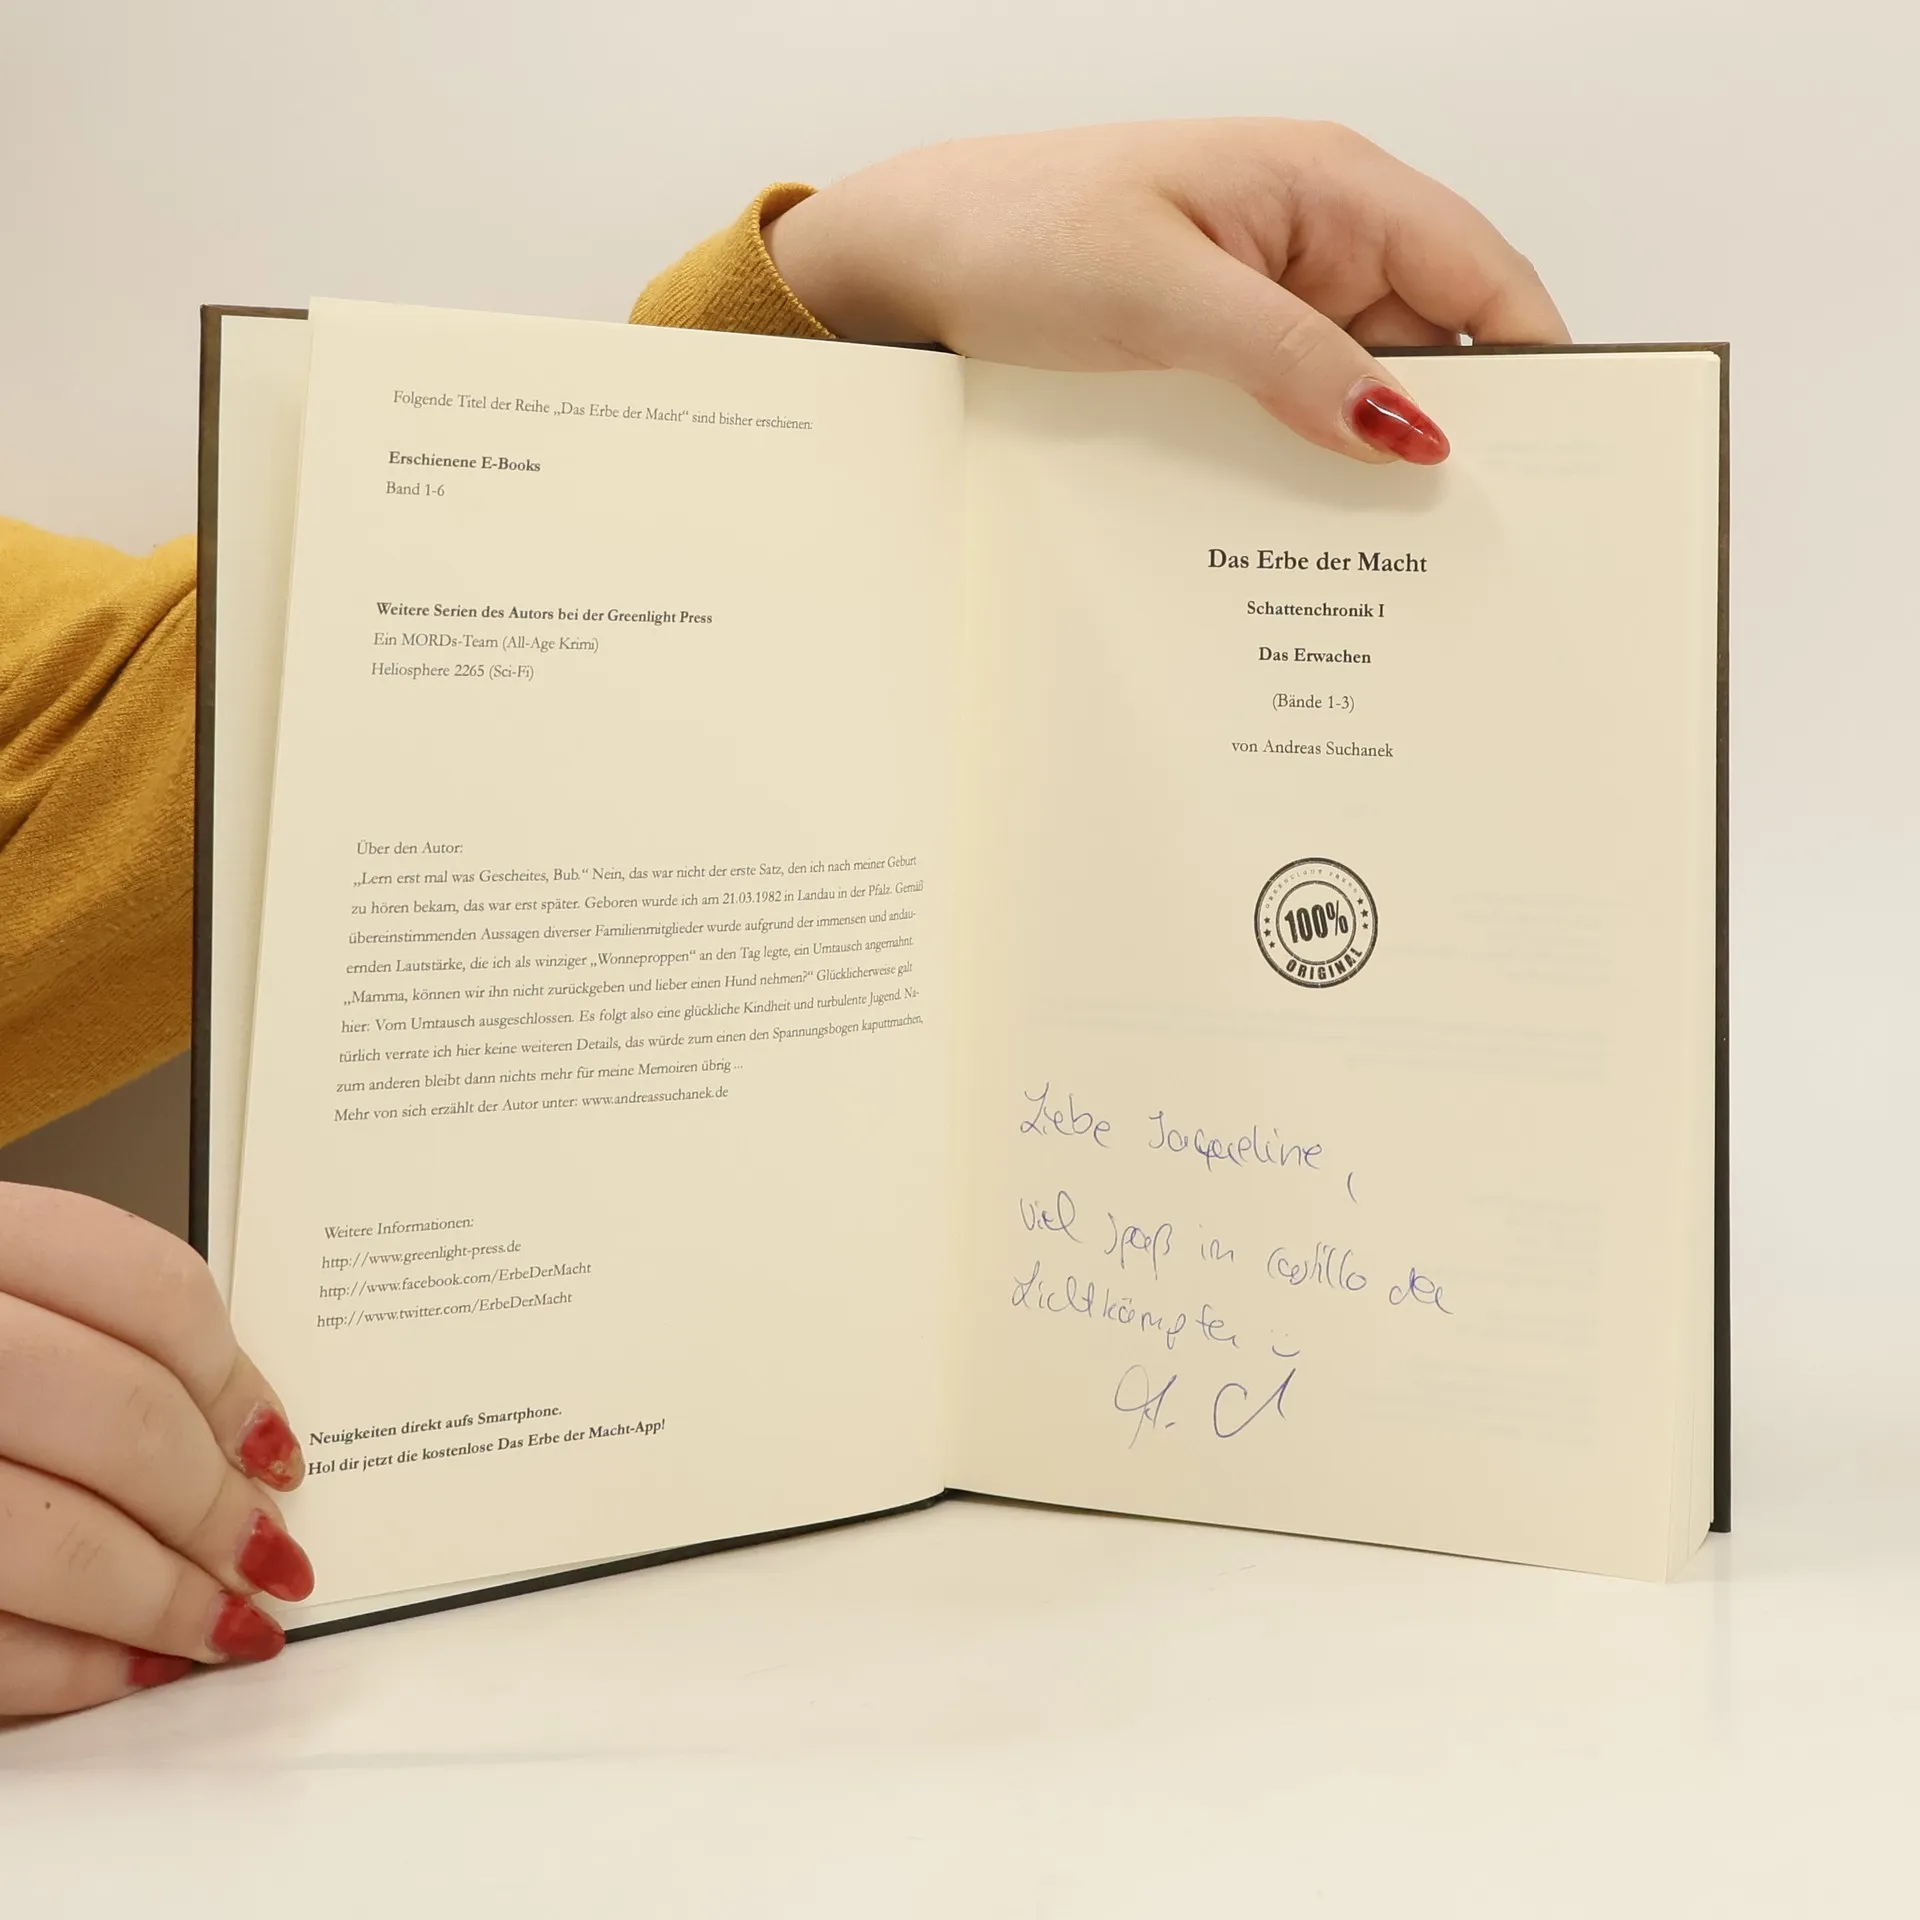 Folgende Titel der Reihe „Das Erbe der Macht“ sind bisher erschienen:
Erschienene E-Books
Band 1-6
Weitere Serien des Autors bei der Greenlight Press
Ein MORDs-Team (All-Age Krimi)
Heliosphere 2265 (Sci-Fi)
Über den Autor:
„Lern erst mal was Gescheites, Bub.“ Nein, das war nicht der erste Satz, den ich nach meiner Geburt
zu hören bekam, das war erst später. Geboren wurde ich am 21.03.1982 in Landau in der Pfalz. Gemäß
übereinstimmenden Aussagen diverser Familienmitglieder wurde aufgrund der immensen und andau-
ernden Lautstärke, die ich als winziger „Wonneproppen“ an den Tag legte, ein Umtausch angemahnt.
„Mamma, können wir ihn nicht zurückgeben und lieber einen Hund nehmen?“ Glücklicherweise galt
hier: Vom Umtausch ausgeschlossen. Es folgt also eine glückliche Kindheit und turbulente Jugend. Na-
türlich verrate ich hier keine weiteren Details, das würde zum einen den Spannungsbogen kaputtmachen,
zum anderen bleibt dann nichts mehr für meine Memoiren übrig ...
Mehr von sich erzählt der Autor unter: www.andreassuchanek.de
Weitere Informationen:
http://www.greenlight-press.de
http://www.facebook.com/ErbeDerMacht
http://www.twitter.com/ErbeDerMacht
Neuigkeiten direkt aufs Smartphone.
Hol dir jetzt die kostenlose Das Erbe der Macht-App!
Das Erbe der Macht
Schattenchronik I
Das Erwachen
(Bände 1-3)
von Andreas Suchanek
GREENLIGHT PRESS
100%
ORIGINAL
Liebe Jacqueline,
viel Spaß im Castillo der
Lichtkämpfer